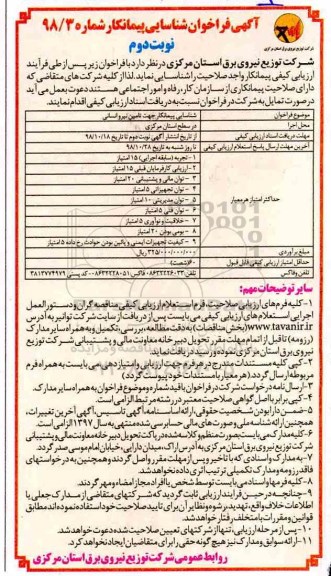 آگهی فراخوان شناسایی پیمانکار شماره ۹۸/۳
نوبت دوم
شرکت توزیع نیروی برق استان مرکزی در نظر دارد با فراخوان زیر پس از طی فرآیند
ارزیابی کیفی پیمانکار واجد صلاحیت را شناسایی نماید. لذا از کلیه شرکت های متقاضی که
دارای صلاحیت پیمانکاری از سازمان کار، رفاه و امور اجتماعی هستند دعوت بعمل می آید
در صورت تمایل به شرکت در فراخوان نسبت به دریافت اسناد ارزیابی کیفی اقدام نمایند.
موضوع فراخوان شناسایی پیمانکار جهت تامین نیرو انسانی
محل اجرا در سطح استان مرکزی
مهلت دریافت اسناد ارزیابی کیفی از تاریخ انتشار آگهی نوبت دوم تا تاریخ ۹۸/۱۰/۱۸
آخرین مهلت ارسال پاسخ استعلام ارزیابی کیفی تا روز شنبه به تاریخ ۹۸/۱۰/۲۸
حداکثر امتیاز هر معیار
۱- تجربه (سابقه اجرایی) ۱۵ امتیاز
۲- ارزیابی کارفرمایان قبلی ۱۵ امتیاز
۳- توان مالی و پشتیبانی ۲۰ امتیاز
۴- توان تجهیزاتی ۵ امتیاز
۵- توان مدیریتی ۱۰ امتیاز
۶- توان فنی ۵ امتیاز
۷- خلاقیت و نوآوری ۵ امتیاز
۸- بومی بودن ۲۰ امتیاز
۹- کیفیت تجهیزات ایمنی و پائین بودن حوادث رخ داده ۵ امتیاز
مبلغ برآوردی ۳۲۵/۰۰۰/۰۰۰/۰۰۰ ریال
حداقل امتیاز ارزیابی کیفی قابل قبول ۶۰ (شصت)
تلفن و فاکس
سایر توضیحات مهم:
۱- کلیه فرم های ارزیابی صلاحیت، فرم استعلام ارزیابی کیفی مناقصه گران و دستورالعمل
اجرایی استعلام های ارزیابی کیفی می بایست پس از دریافت از سایت شرکت توانیر به آدرس
www.tavanir.ir (بخش مناقصات) به دقت مطالعه، بررسی، تکمیل و به همراه سایر مدارک
(رزومه) تا قبل از اتمام مهلت مقرر تحویل دبیرخانه معاونت مالی و پشتیبانی شرکت توزیع
نیروی برق استان مرکزی نموده و رسید دریافت نمایند.
۲- کپی کلیه مستندات مندرج در هر فرم جهت ارزیابی و امتیازدهی می بایست به همراه فرم
مربوطه ارسال گردد (هر معیار با مستندات خود پیوست گردد).
۳- ارسال نامه درخواست شرکت در فراخوان با قید شماره و موضوع فراخوان به همراه سایر مدارک.
۴- کپی برابر با اصل گواهی صلاحیت معتبر در رشته مرتبط الزامی است.
۵- ضمن دارا بودن شخصیت حقوقی، ارائه اساسنامه، آگهی تاسیس، آگهی آخرین تغییرات،
همچنین ارائه شناسه ملی و صورت های مالی حسابرسی شده منتهی به سال ۱۳۹۷ الزامی است.
۶- کلیه مدارک می بایست بصورت منظم و کلاسه شده در پاکت تحویل دبیرخانه معاونت مالی و پشتیبانی
شرکت توزیع نیروی برق استان مرکزی به آدرس اراک، میدان دارایی، خیابان امام موسی صدر گردد.
۷- به مدارک و اسنادی که با تاخیر پس از مهلت مقرر واصل گردند و همچنین به درخواستهای
فاقد رزومه و مدارک تکمیلی ترتیب اثری داده نخواهد شد.
۸- کلیه فرمها و اسناد می بایست توسط شخص یا افراد مجاز امضاء و مهر گردند.
۹- چنانچه در حین فرایند ارزیابی ثابت گردید که شرکتهای متقاضی از مدارک جعلی یا
اطلاعات خلاف واقع، تهدید، رشوه و نظایر آن برای تایید صلاحیت خود استفاده نموده اند مطابق
قوانین و مقررات با متخلف رفتار خواهد شد.
۱۰- پس از مرحله ارزیابی، تنها از شرکتهای تعیین صلاحیت شده دعوت خواهد شد.
۱۱- ارائه سوابق و مدارک نیز هیچگونه حقی را برای متقاضیان ایجاد نخواهد کرد.
روابط عمومی شرکت توزیع نیروی برق استان مرکزی